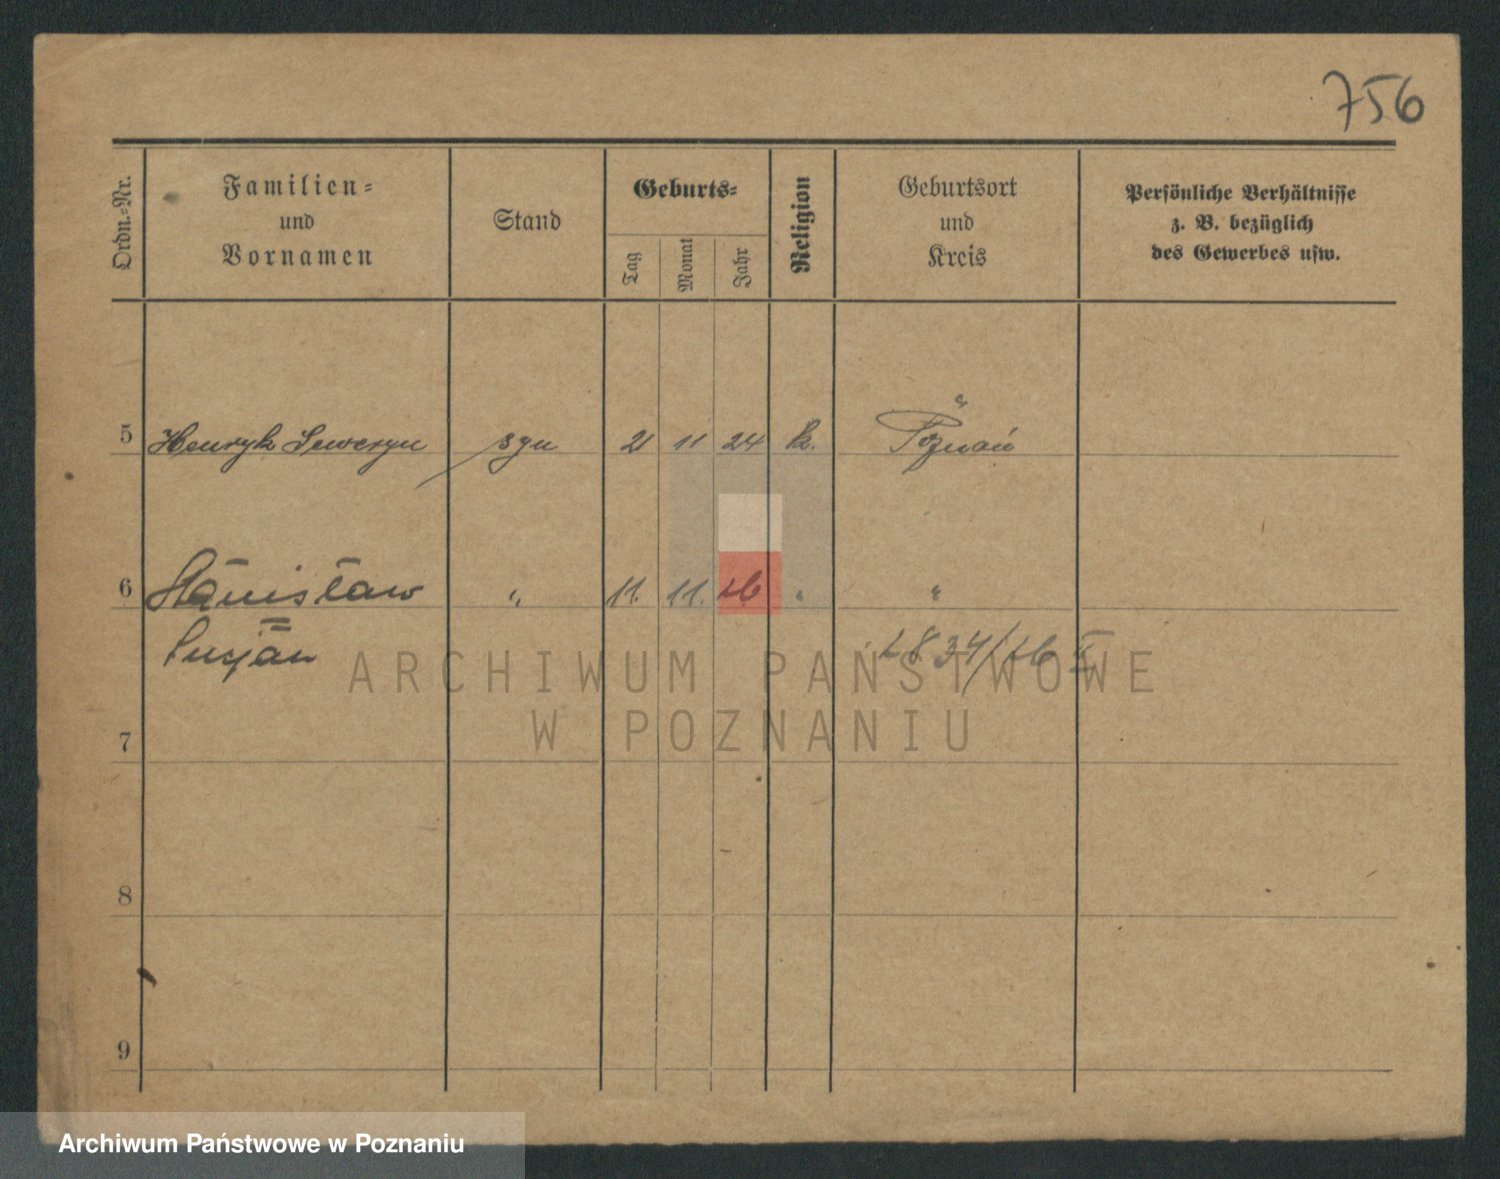 756
Ordn.=Nr.
Familien=
und
Vornamen
Stand
Geburts=
Tag
Monat
Jahr
Religion
Geburtsort
und
Kreis
Persönliche Verhältnisse
z. B. bezüglich
des Gewerbes usw.
5 Henryk Seweryn syn 21 11 24 k. Poznań
6 Stanisław " 11. 11. 26 " "
Lucjan
L 834/26 I
7
8
9
ARCHIWUM PAŃSTWOWE
W POZNANIU
Archiwum Państwowe w Poznaniu